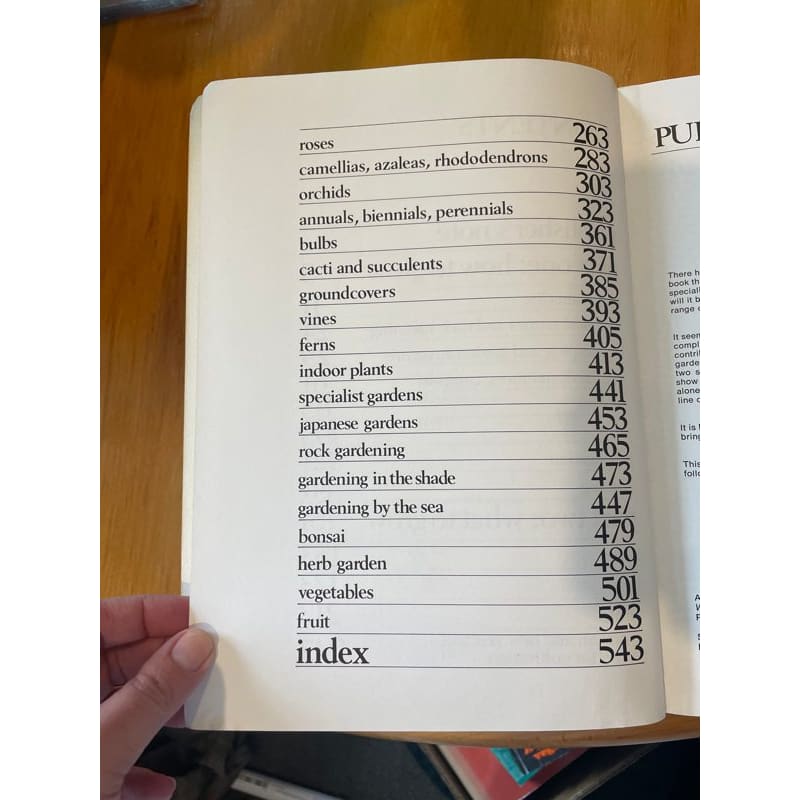 roses 263
camellias, azaleas, rhododendrons 283
orchids 303
annuals, biennials, perennials 323
bulbs 361
cacti and succulents 371
groundcovers 385
vines 393
ferns 405
indoor plants 413
specialist gardens 441
japanese gardens 453
rock gardening 465
gardening in the shade 473
gardening by the sea 447
bonsai 479
herb garden 489
vegetables 501
fruit 523
index 543
PU
There h
book th
speciall
will it b
range
It seem
compl
contri
garde
two s
show
alone
line
It is
bring
This
follo